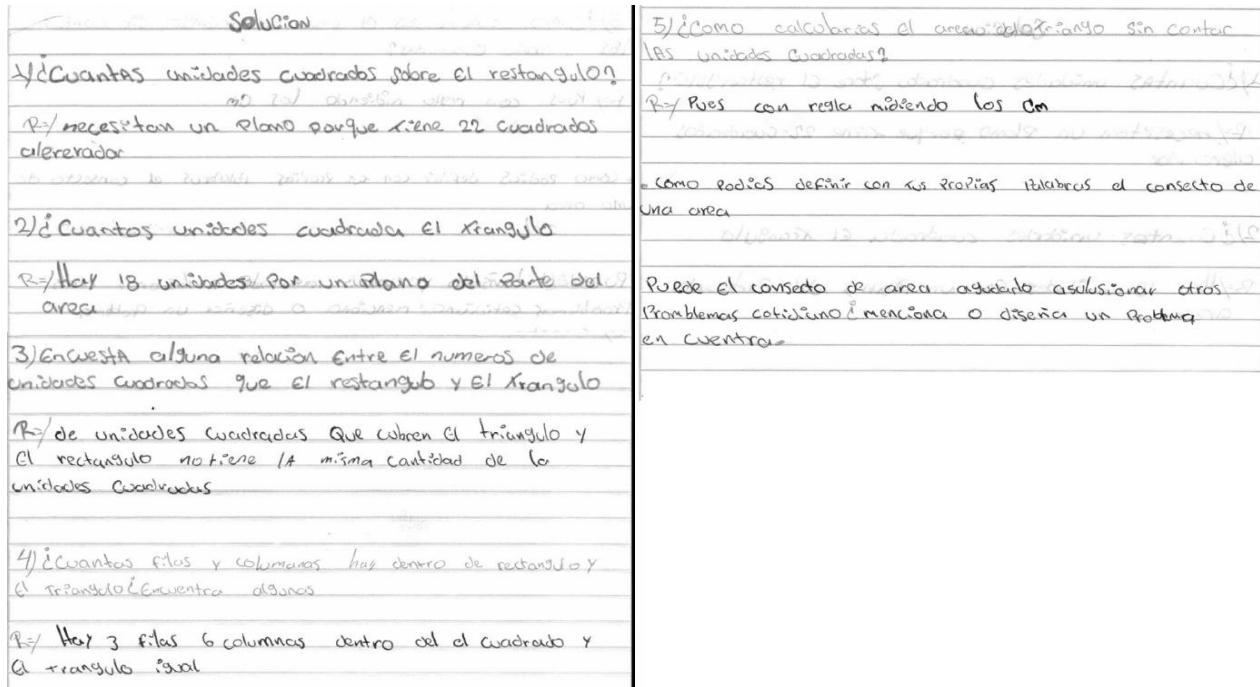 Solucion
1) ¿Cuantas unidades cuadrados sobre El restangulo?
R=/ necesitan un plano porque tiene 22 cuadrados
alererador
2) ¿Cuantos unidades cuadrada El triangulo
R=/ Hay 18 unidades por un plano del parte del
area
3) Encuesta alguna relacion Entre El numeros de
unidades cuadrados que El restangulo y El trangulo
R=/ de unidades cuadradas Que cubren El triangulo y
El rectangulo no tiene la misma cantidad de la
unidades Cuadradas
4) ¿Cuantas filas y columanas hay dentro de rectangulo y
El triangulo ¿Encuentra algunas
R=/ Hay 3 filas 6 columnas dentro del el cuadrado y
El trangulo igual
5) ¿Como calcularias el area triango sin contar
las unidades Cuadradas?
R=/ Pues con regla midiendo los cm
. como podies definir con tus propias palabras el consecto de
una area
Puede El consecto de area agudarlo asulusionar otros
Promblemas cotidiano ¿menciona o diseña un Problema
en cuentra.